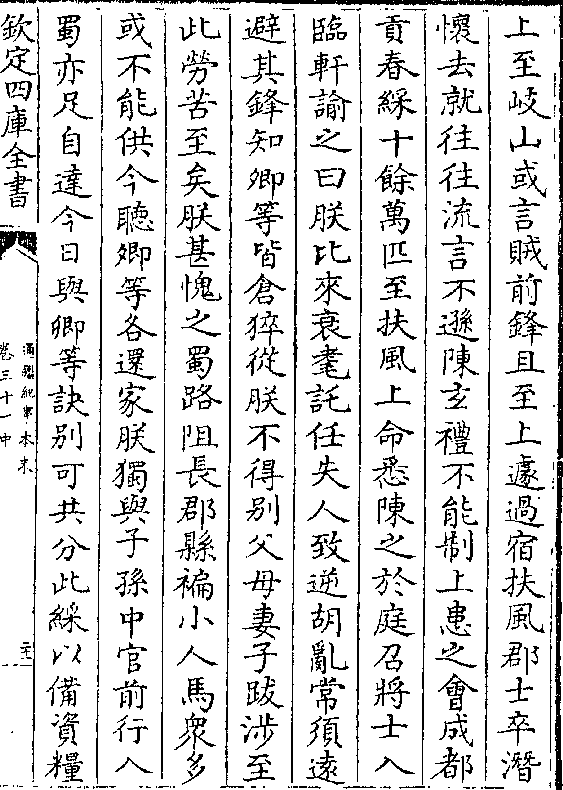 上至岐山或言賊前鋒且至上遽過宿扶風郡士卒潛
懷去就往往流言不遜陳玄禮不能制上患之會成都
貢春綵十餘萬匹至扶風上命悉陳之於庭召將士入
臨軒諭之曰朕比來衰耄託任失人致逆胡亂常須遠
避其鋒知卿等皆倉猝從朕不得别父母妻子跋涉至
此勞苦至矣朕甚愧之蜀路阻長郡縣褊小人馬衆多
或不能供今聽卿等各還家朕獨與子孫中官前行入
蜀亦足自達今日與卿等訣别可共分此綵以備資糧
欽定四庫全書
通鑑紀事本末
卷三十一中